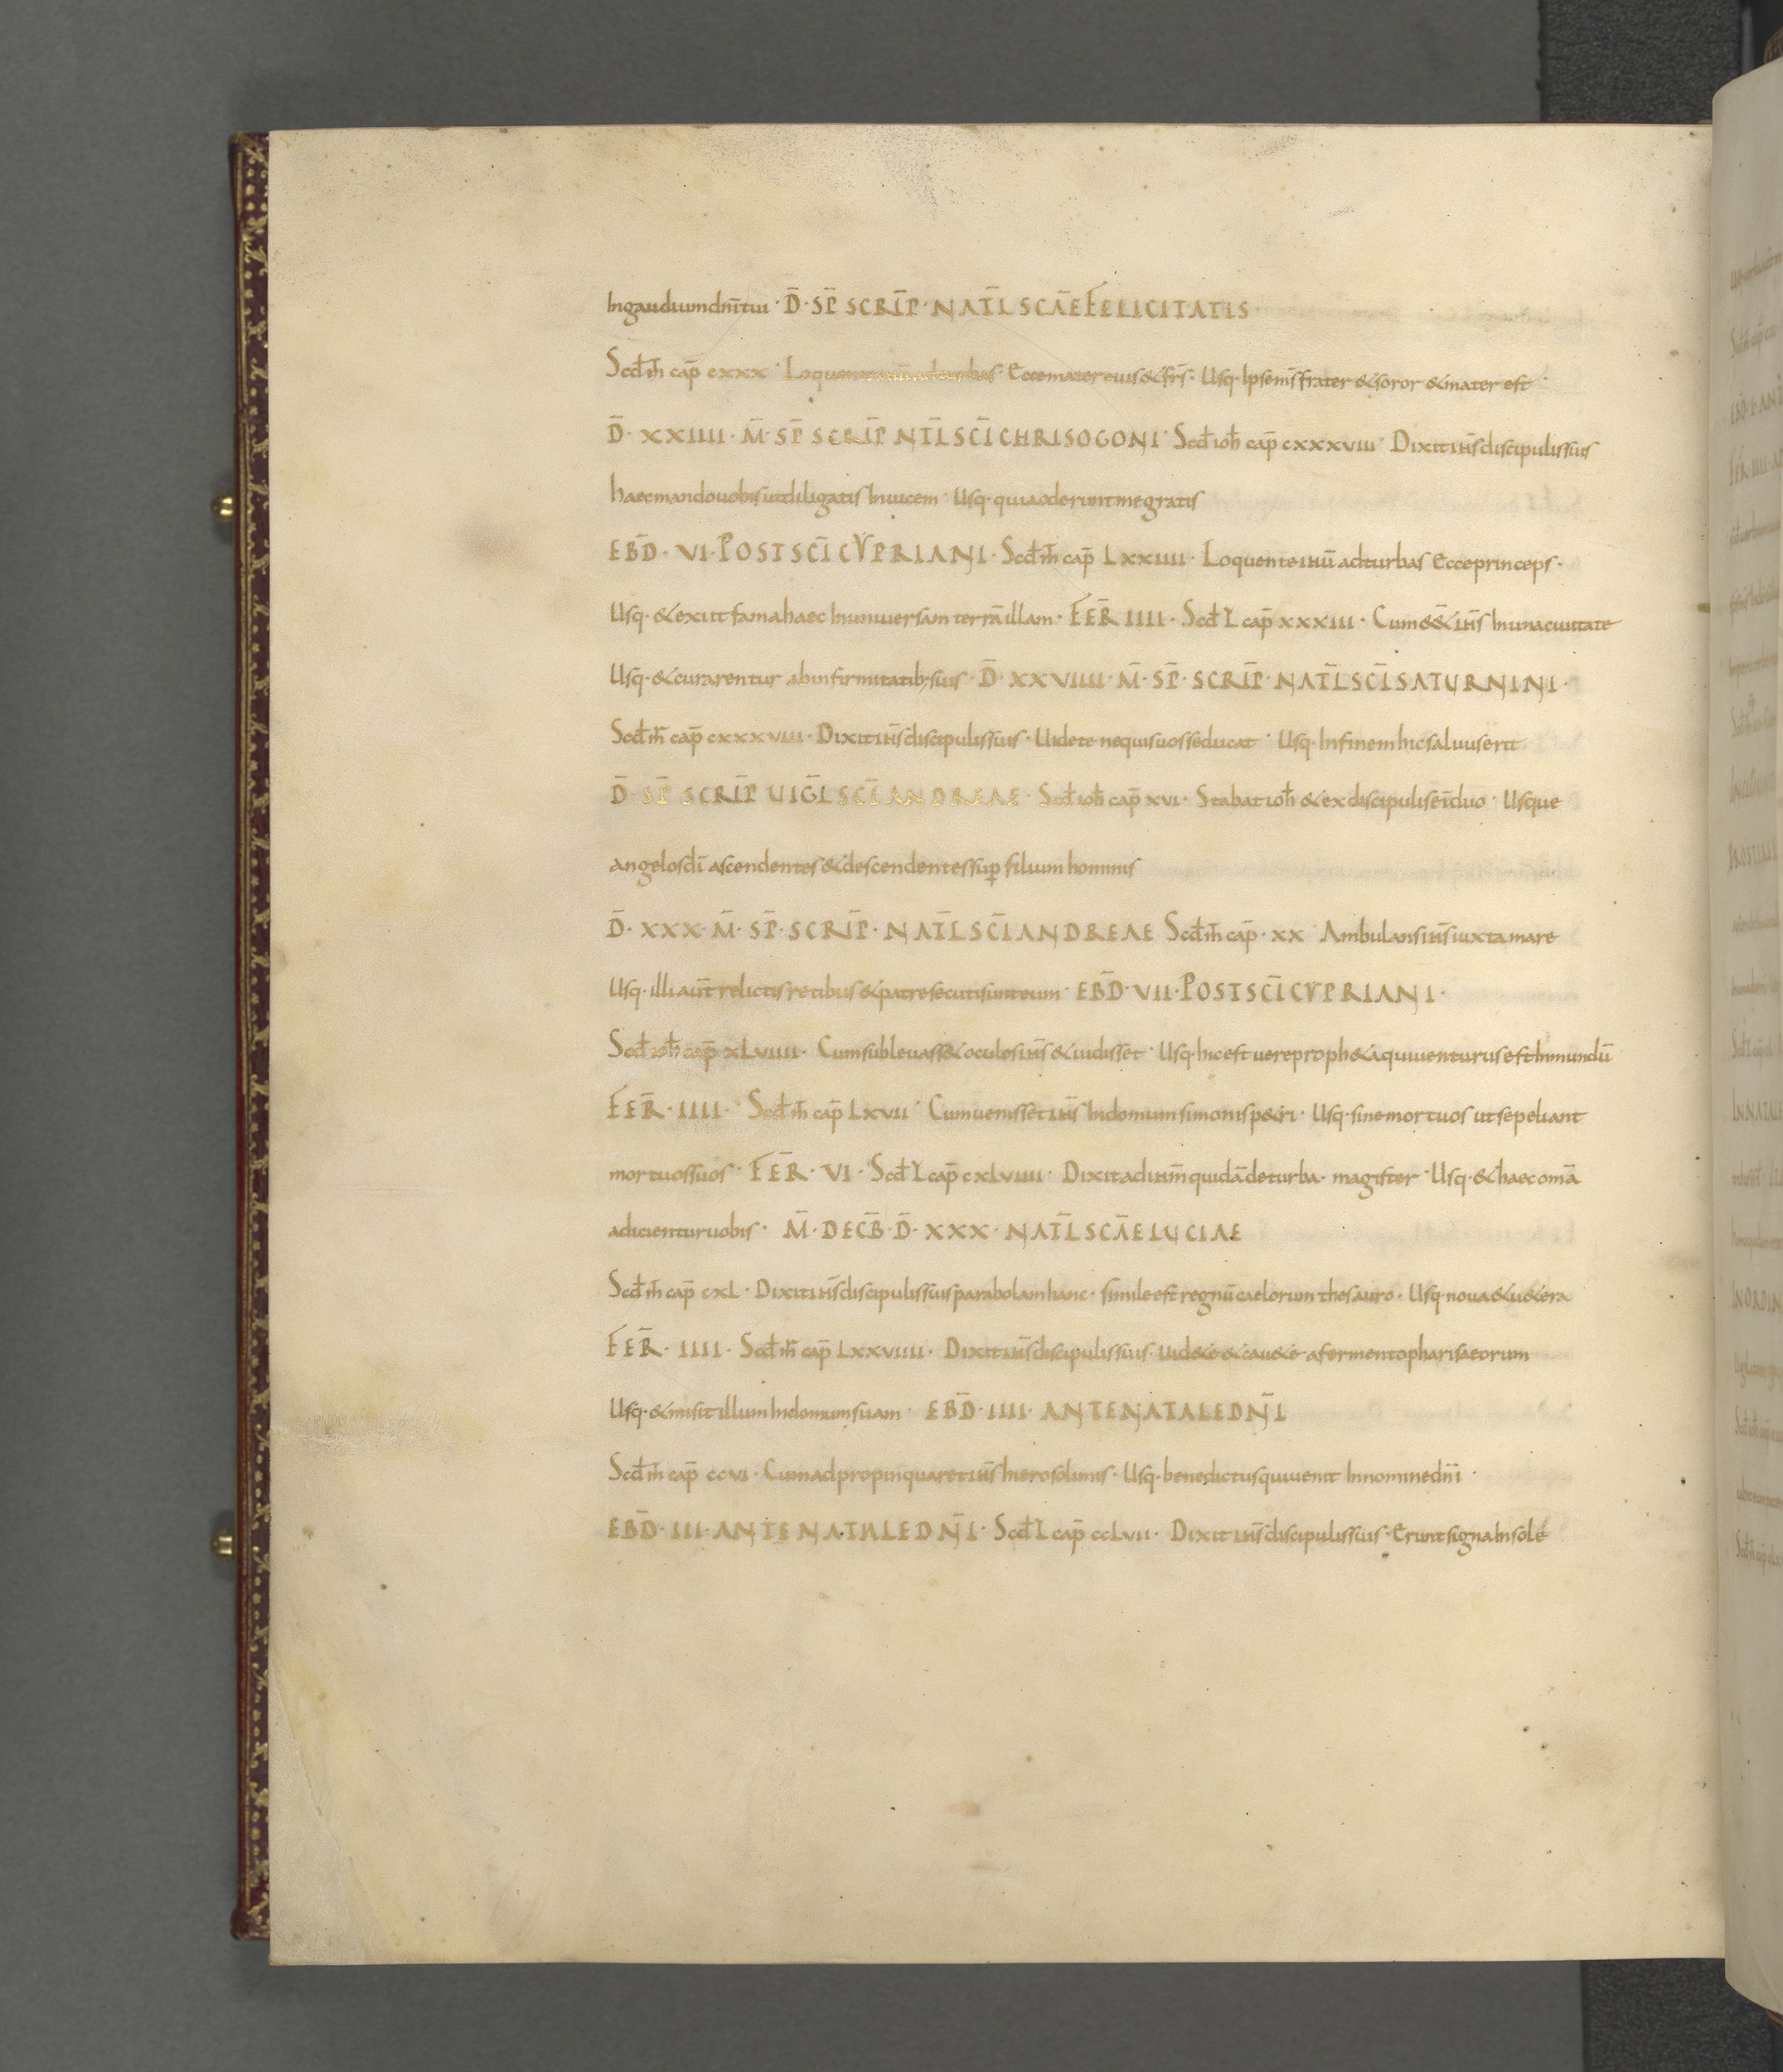 Ingaudiumdn̄itui · D̄ · SP̄ SCRIP̄ · NAT̄L SCĀE FELICITATIS
Scd̄ m̄ cap̄ cxxx · Loquenteihū adturbas · Eccemater euis & fr̄s · Usq · Ipsemīs frater & soror & mater est ·
D̄ · XXIIII · M̄ · SP̄ SCRIP̄ NT̄L SC̄I CHRISOGONI · Scd̄ ioh̄ cap̄ cxxxviii · Dixit ih̄s discipulissuis
haecmandouobis utdiligatis Inuicem · Usq · quiaoderuntmegratis
EBD̄ · VI · POST SC̄I CYPRIANI · Scd̄ m̄ cap̄ Lxxiiii · Loquenteihū adturbas Ecceprinceps ·
Usq · & exiit famahaec Inuniuersam terrā illam · FER̄ IIII · Scd̄ L cap̄ xxxiii · Cum ēē& ih̄s Inunaciuitate
Usq · & curarentur abinfirmitatib; suis · D̄ · XXVIIII · M̄ · SP̄ · SCRIP̄ · NAT̄L SC̄I SATURNINI ·
Scd̄ m̄ cap̄ cxxxviii · Dixit ih̄s discipulissuis · Uidete nequisuosseducat · Usq · Infinemhicsaluuserit
D̄ · SP̄ SCRIP̄ UIḠL SC̄I ANDREAE · Scd̄ ioh̄ cap̄ xvi · Stabat ioh̄ & exdiscipulis eī duo · Usque
angelosdī ascendentes & descendentessup̄ filium hominis
D̄ · XXX · M̄ · SP̄ · SCRIP̄ · NAT̄L SC̄I ANDREAE Scd̄ m̄ cap̄ · xx · Ambulansih̄s iuxtamare
Usq · illi aūt relictis retibus & patresecutisunteum · EBD̄ · VII · POST SC̄I CYPRIANI ·
Scd̄ ioh̄ cap̄ xLviiii · Cumsubleuass& oculos ih̄s & uidisset · Usq · hic est uereproph&a quiuenturus est Inmundū
FER̄ · IIII · Scd̄ m̄ cap̄ Lxvii · Cumuenisset ih̄s Indomumsimonisp&ri · Usq · sinemortuos utsepeliant
mortuossuos · FER̄ · VI · Scd̄ L cap̄ cxLviiii · Dixitadih̄m quidā deturba · magister · Usq · & haecomā
adicienturuobis · M̄ · DECB̄ · D̄ · XXX · NAT̄L SCĀE LUCIAE
Scd̄ m̄ cap̄ cxL · Dixit ih̄s discipulissuisparabolamhanc · simile est regnū caelorum thesauro · Usq · noua & u&era
FER̄ · IIII · Scd̄ m̄ cap̄ Lxxviiii · Dixit ih̄s discipulissuis · uid&e & cau&e afermentopharisaeorum
Usq · & misit illum Indomumsuam · EBD̄ · IIII · ANTENATALEDN̄I
Scd̄ m̄ cap̄ ccvi · Cumadpropinquaret ih̄s hierosolimis · Usq · benedictusquiuenit Innominedn̄i ·
EBD̄ · III · ANTE NATALEDN̄I · Scd̄ L cap̄ ccLvii · Dixit ih̄s discipulissuis · Eruntsigna Insole